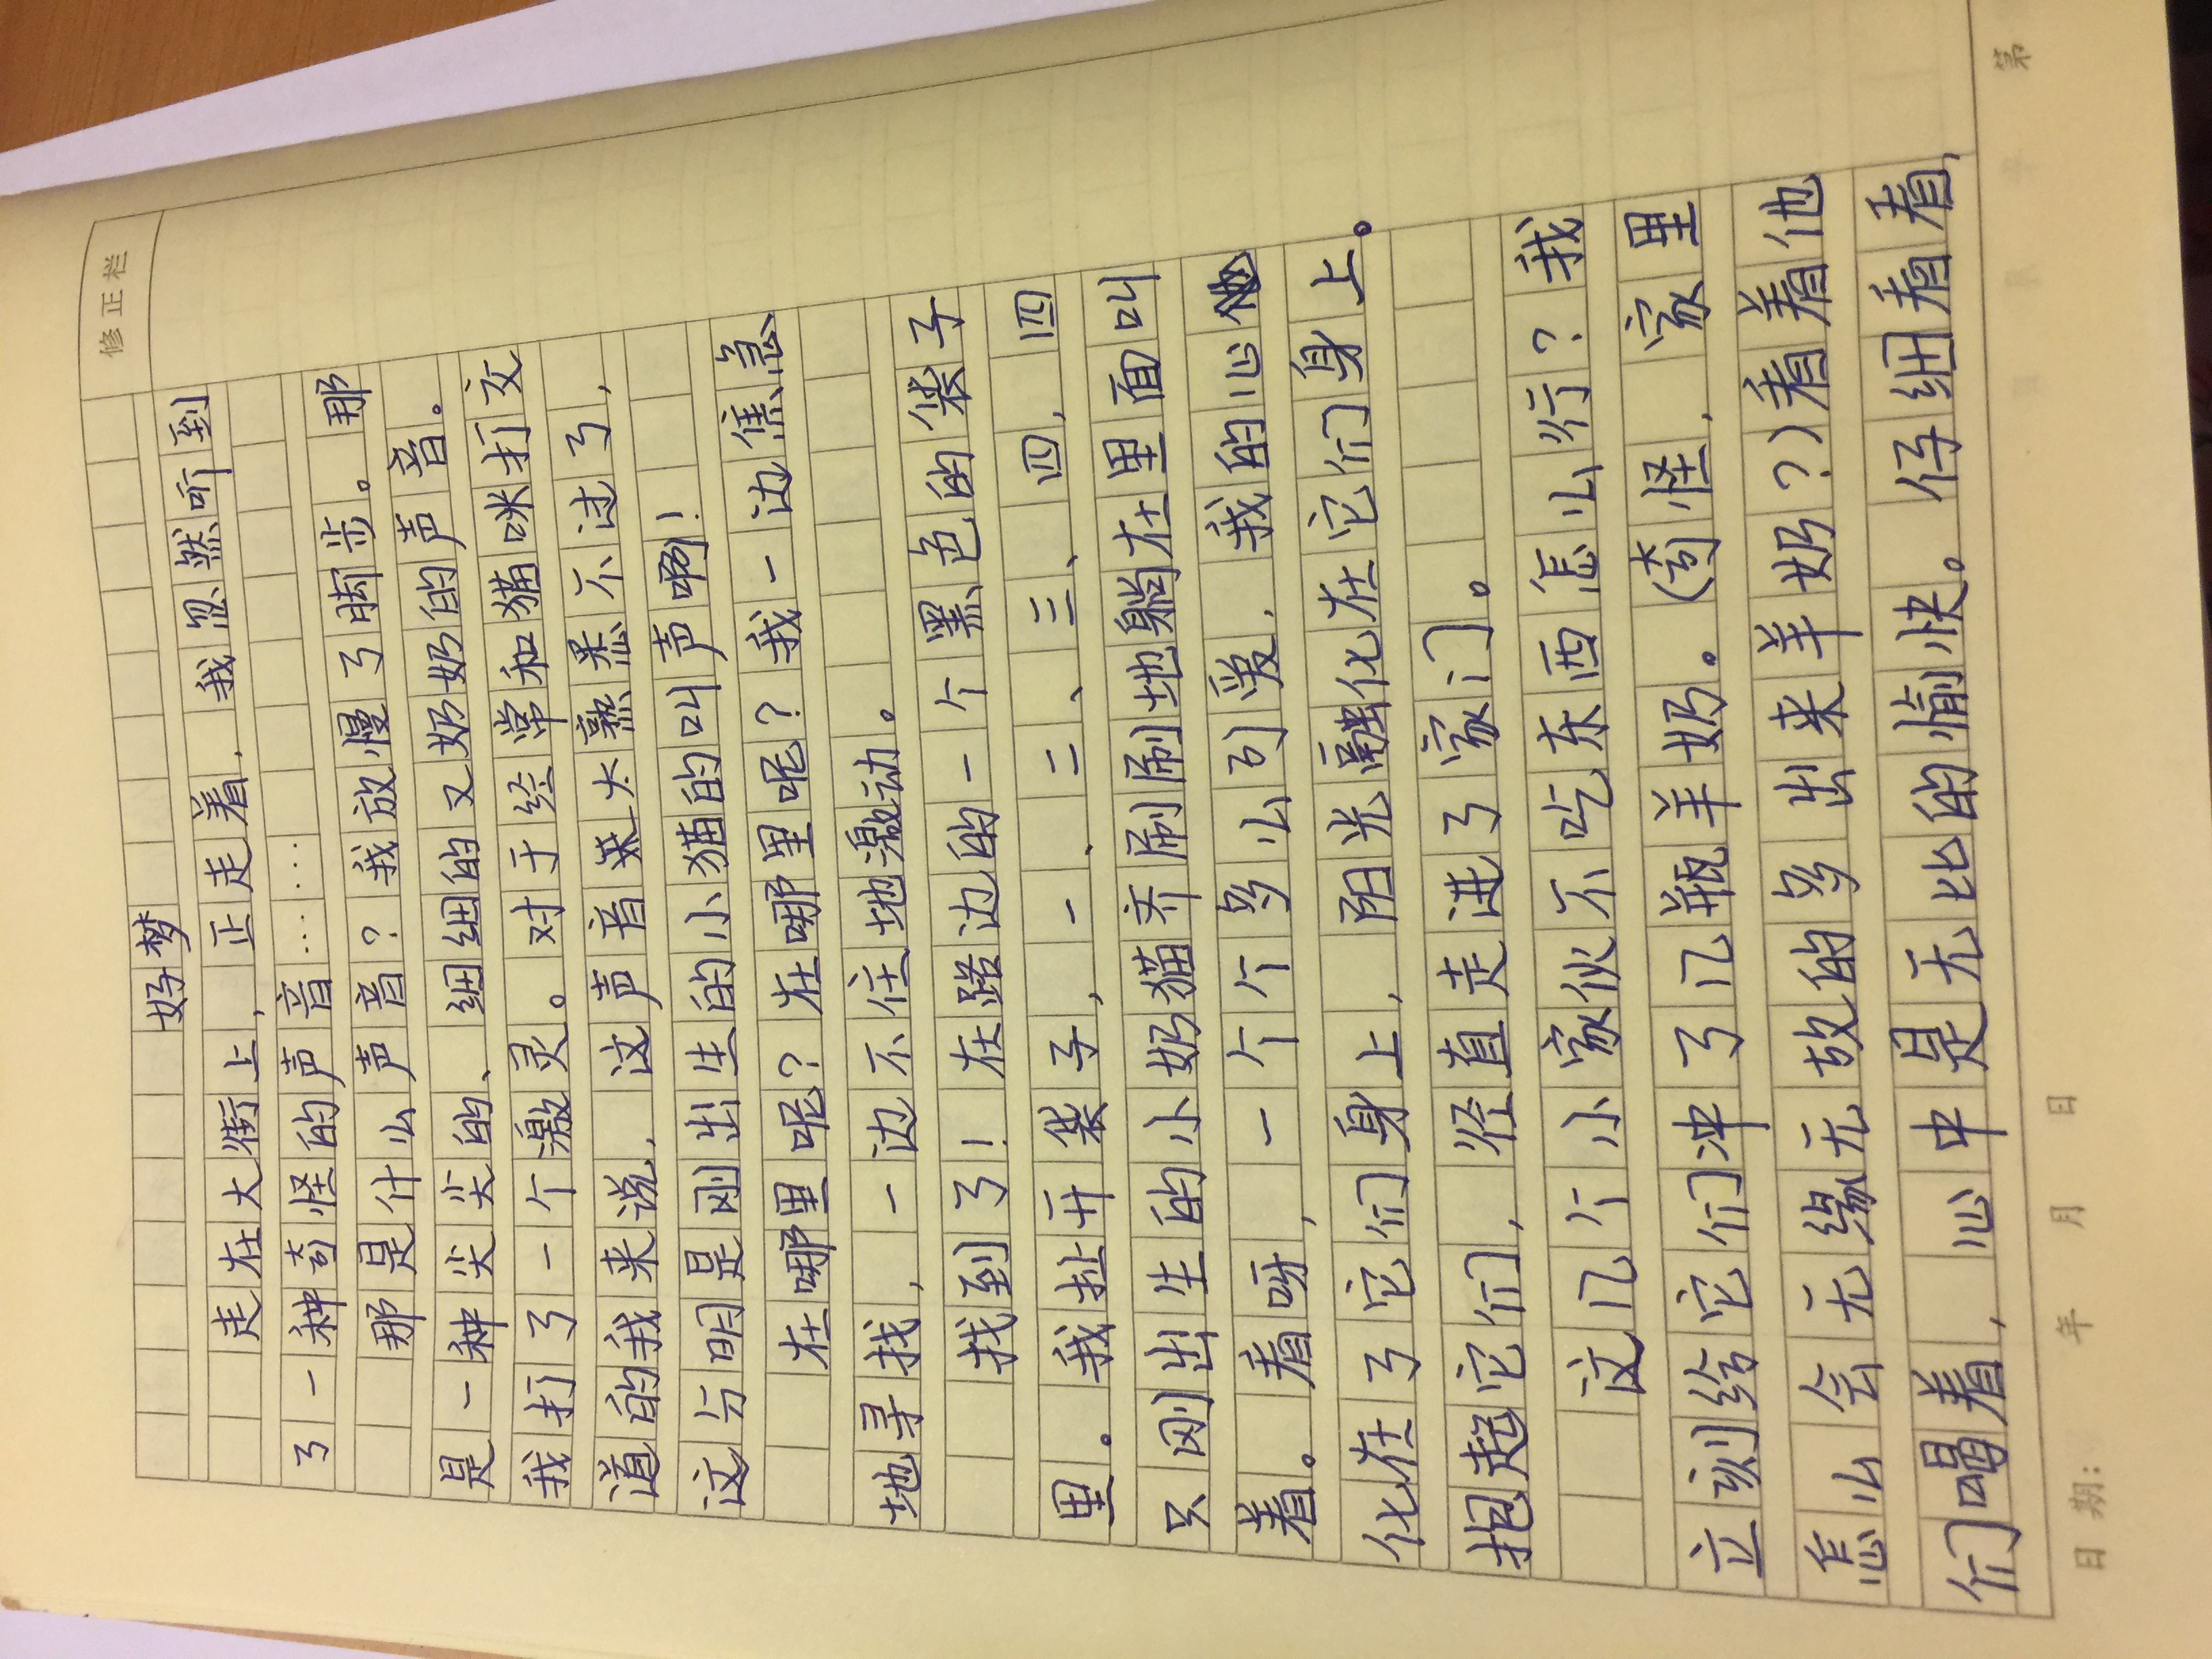 修正栏
好梦
走在大街上，正走着，我忽然听到
了一种奇怪的声音……
那是什么声音？我放慢了脚步。那
是一种尖尖的、细细的又奶奶的声音。
我打了一个激灵。对于经常和猫咪打交
道的我来说，这声音来太熟悉不过了，
这分明是刚出生的小猫的叫声啊！
在哪里呢？在哪里呢？我一边焦急
地寻找，一边不住地激动。
找到了！在路边的一个黑色的袋子
里。我扯开袋子，一、二、三、四，四
只刚出生的小奶猫齐刷刷地躺在里面叫
着。看呀，一个个多么引爱，我的心
化在了它们身上，阳光融化在它们身上。
抱起它们，径直走进了家门。
这几个小家伙不吃东西怎么行？我
立刻给它们冲了几瓶羊奶。（奇怪，家里
怎么会无缘无故的多出来羊奶？）看着他
们喝着，心中是无比的愉快。仔细看看，
日期： 年 月 日
第